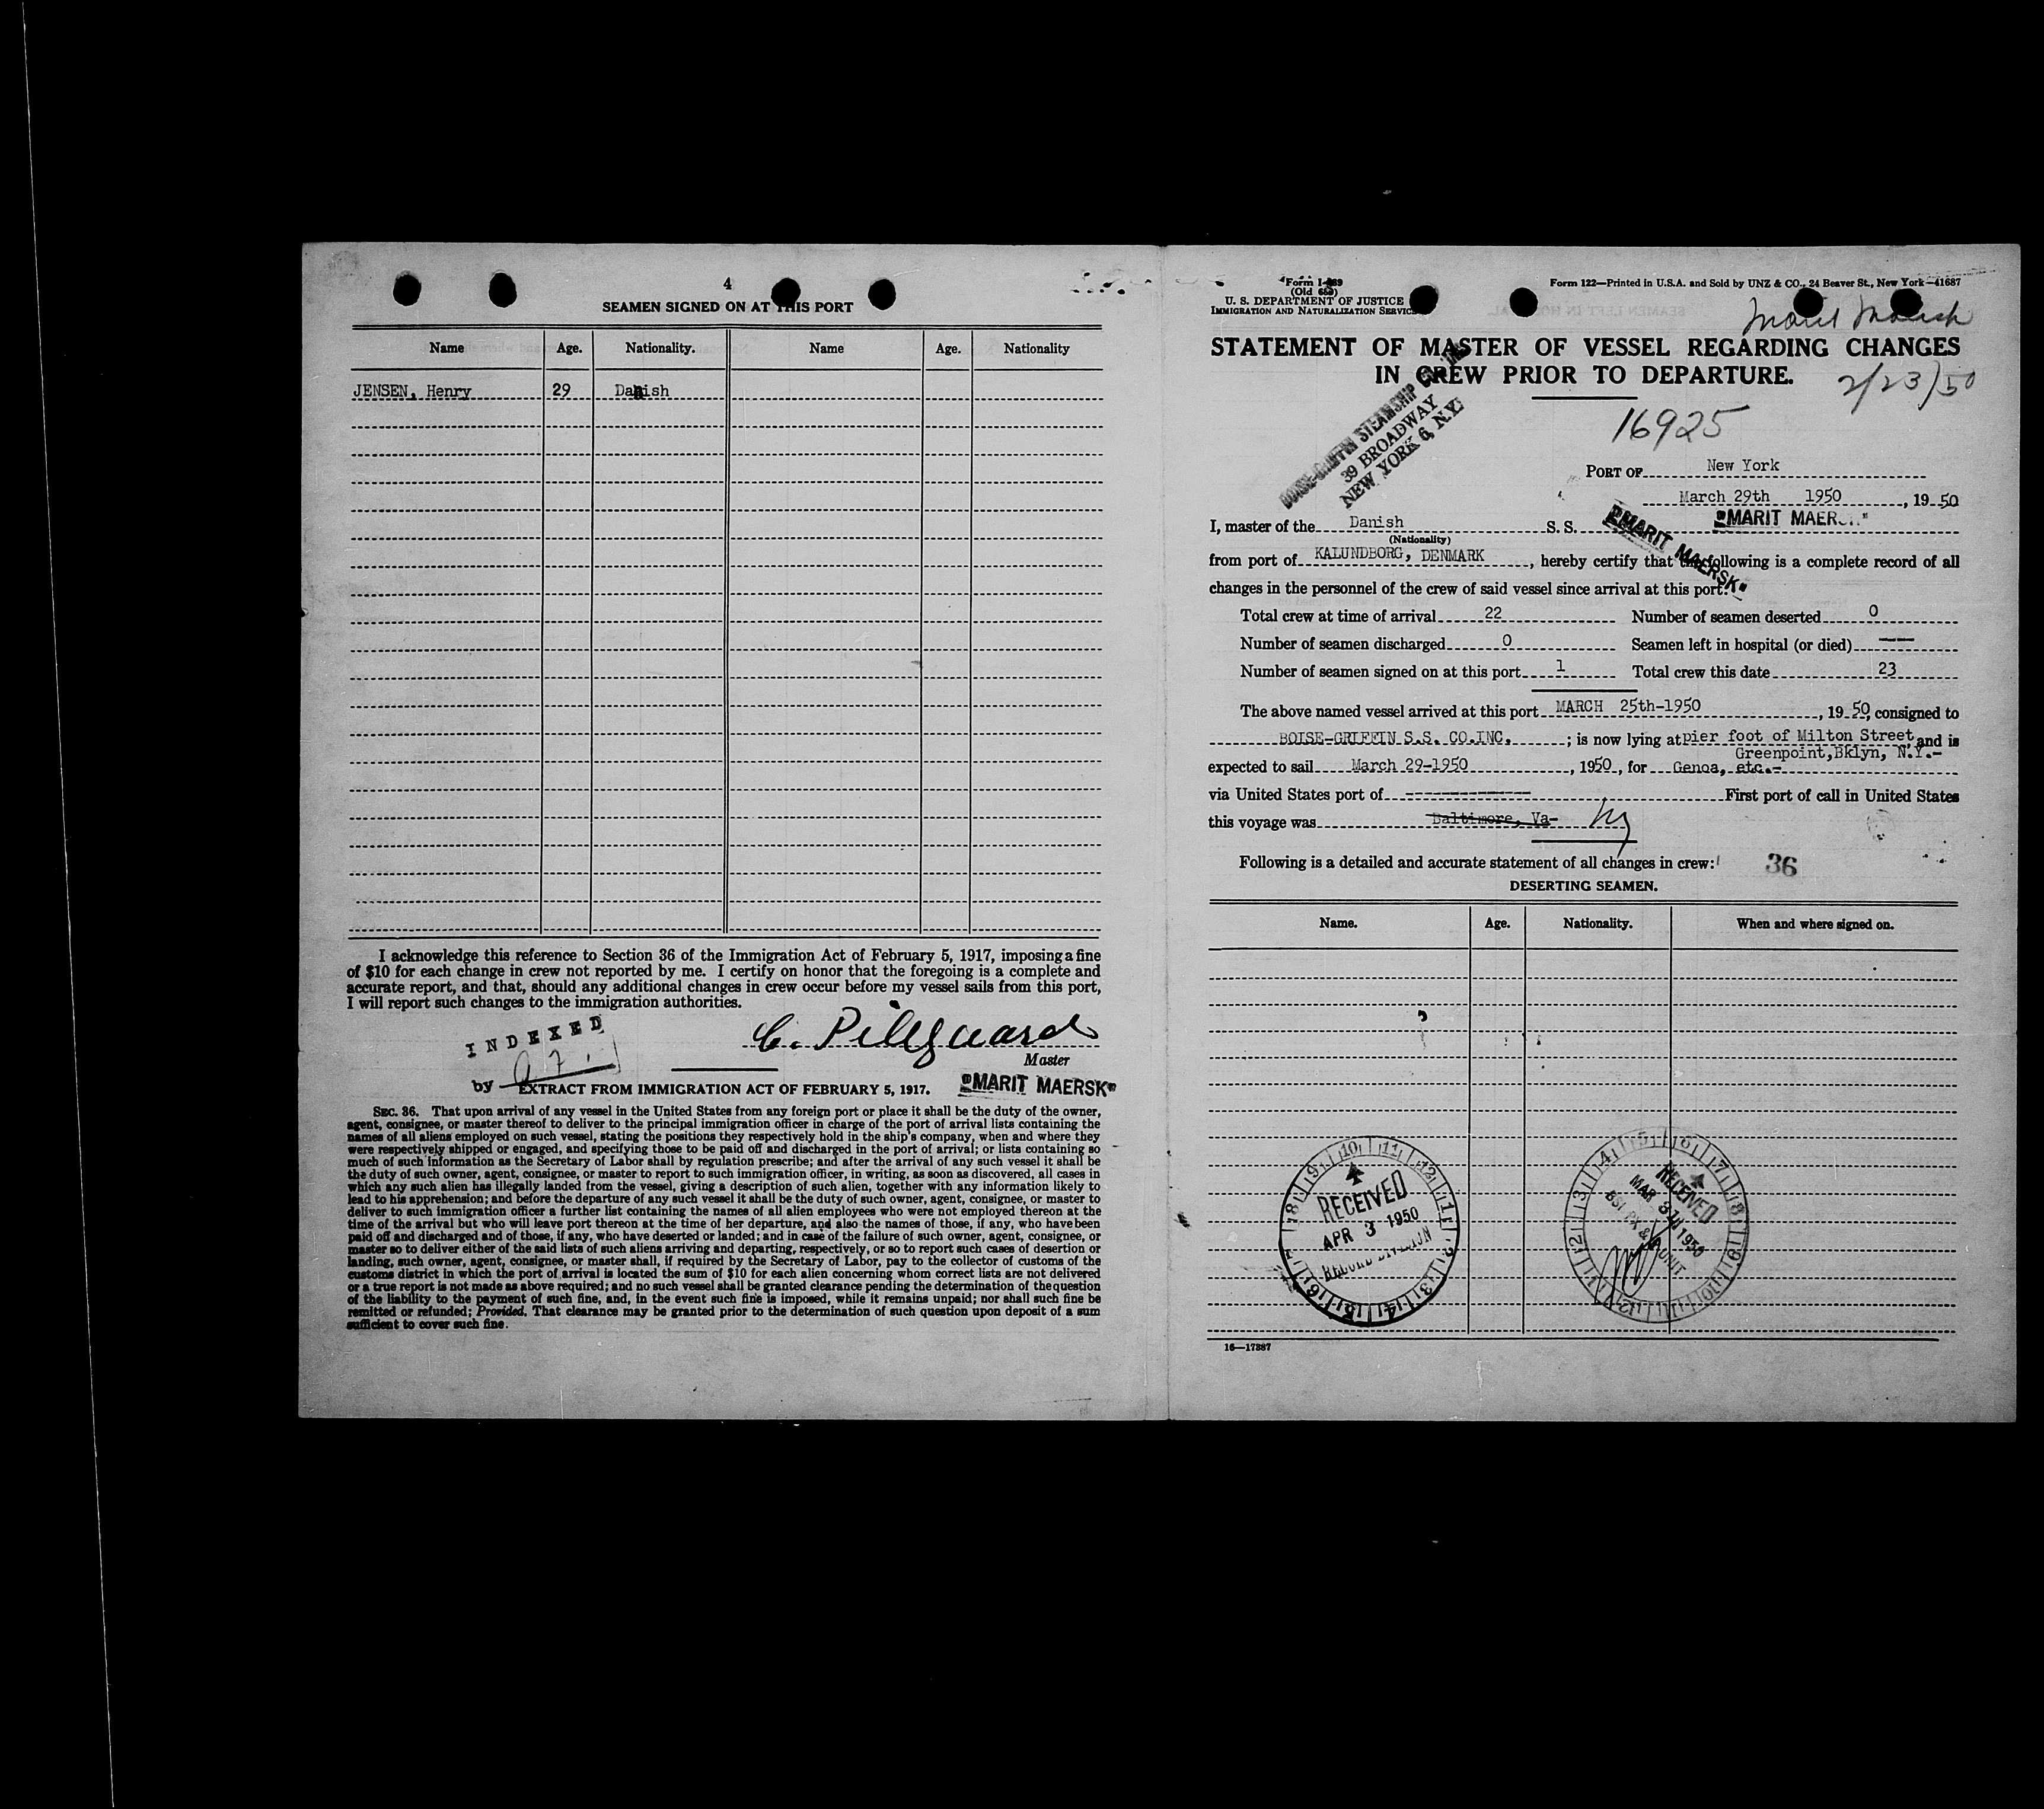 4
SEAMEN SIGNED ON AT THIS PORT
Name Age. Nationality. Name Age. Nationality
JENSEN, Henry 29 Danish
I acknowledge this reference to Section 36 of the Immigration Act of February 5, 1917, imposing a fine
of $10 for each change in crew not reported by me. I certify on honor that the foregoing is a complete and
accurate report, and that, should any additional changes in crew occur before my vessel sails from this port,
I will report such changes to the immigration authorities.
INDEXED
by
C. Pilegaard
Master
"MARIT MAERSK"
EXTRACT FROM IMMIGRATION ACT OF FEBRUARY 5, 1917.
SEC. 36. That upon arrival of any vessel in the United States from any foreign port or place it shall be the duty of the owner,
agent, consignee, or master thereof to deliver to the principal immigration officer in charge of the port of arrival lists containing the
names of all aliens employed on such vessel, stating the positions they respectively hold in the ship's company, when and where they
were respectively shipped or engaged, and specifying those to be paid off and discharged in the port of arrival; or lists containing so
much of such information as the Secretary of Labor shall by regulation prescribe; and after the arrival of any such vessel it shall be
the duty of such owner, agent, consignee, or master to report to such immigration officer, in writing, as soon as discovered, all cases in
which any such alien has illegally landed from the vessel, giving a description of such alien, together with any information likely to
lead to his apprehension; and before the departure of any such vessel it shall be the duty of such owner, agent, consignee, or master to
deliver to such immigration officer a further list containing the names of all alien employees who were not employed thereon at the
time of the arrival but who will leave port thereon at the time of her departure, and also the names of those, if any, who have been
paid off and discharged and of those, if any, who have deserted or landed; and in case of the failure of such owner, agent, consignee, or
master so to deliver either of the said lists of such aliens arriving and departing, respectively, or so to report such cases of desertion or
landing, such owner, agent, consignee, or master shall, if required by the Secretary of Labor, pay to the collector of customs of the
customs district in which the port of arrival is located the sum of $10 for each alien concerning whom correct lists are not delivered
or a true report is not made as above required; and no such vessel shall be granted clearance pending the determination of the question
of the liability to the payment of such fine, and, in the event such fine is imposed, while it remains unpaid; nor shall such fine be
remitted or refunded; Provided, That clearance may be granted prior to the determination of such question upon deposit of a sum
sufficient to cover such fine.
Form I-489
(Old 689)
U. S. DEPARTMENT OF JUSTICE
IMMIGRATION AND NATURALIZATION SERVICE
Form 122—Printed in U.S.A. and Sold by UNZ & CO., 24 Beaver St., New York—41687
Marit Maersk
STATEMENT OF MASTER OF VESSEL REGARDING CHANGES
IN CREW PRIOR TO DEPARTURE.
2/23/50
16925
BOISE-GRIFFIN STEAMSHIP CO., INC.
39 BROADWAY
NEW YORK 6, N.Y.
PORT OF New York
March 29th 1950, 19 50
I, master of the Danish S. S. "MARIT MAERSK"
(Nationality)
"MARIT MAERSK"
from port of KALUNDBORG, DENMARK, hereby certify that the following is a complete record of all
changes in the personnel of the crew of said vessel since arrival at this port:
Total crew at time of arrival 22 Number of seamen deserted 0
Number of seamen discharged 0 Seamen left in hospital (or died) ——
Number of seamen signed on at this port 1 Total crew this date 23
The above named vessel arrived at this port MARCH 25th-1950, 19 50, consigned to
BOISE-GRIFFIN S.S. CO.INC.; is now lying at pier foot of Milton Street, and is
Greenpoint, Bklyn, N.Y.-
expected to sail March 29-1950, 1950, for Genoa, etc.-
via United States port of -------------- First port of call in United States
this voyage was Baltimore, Va- NY
Following is a detailed and accurate statement of all changes in crew:
36
DESERTING SEAMEN.
Name. Age. Nationality. When and where signed on.
RECEIVED
APR 3 1950
RECORD DIVISION
RECEIVED
MAR 31 1950
UNIT
16—17887